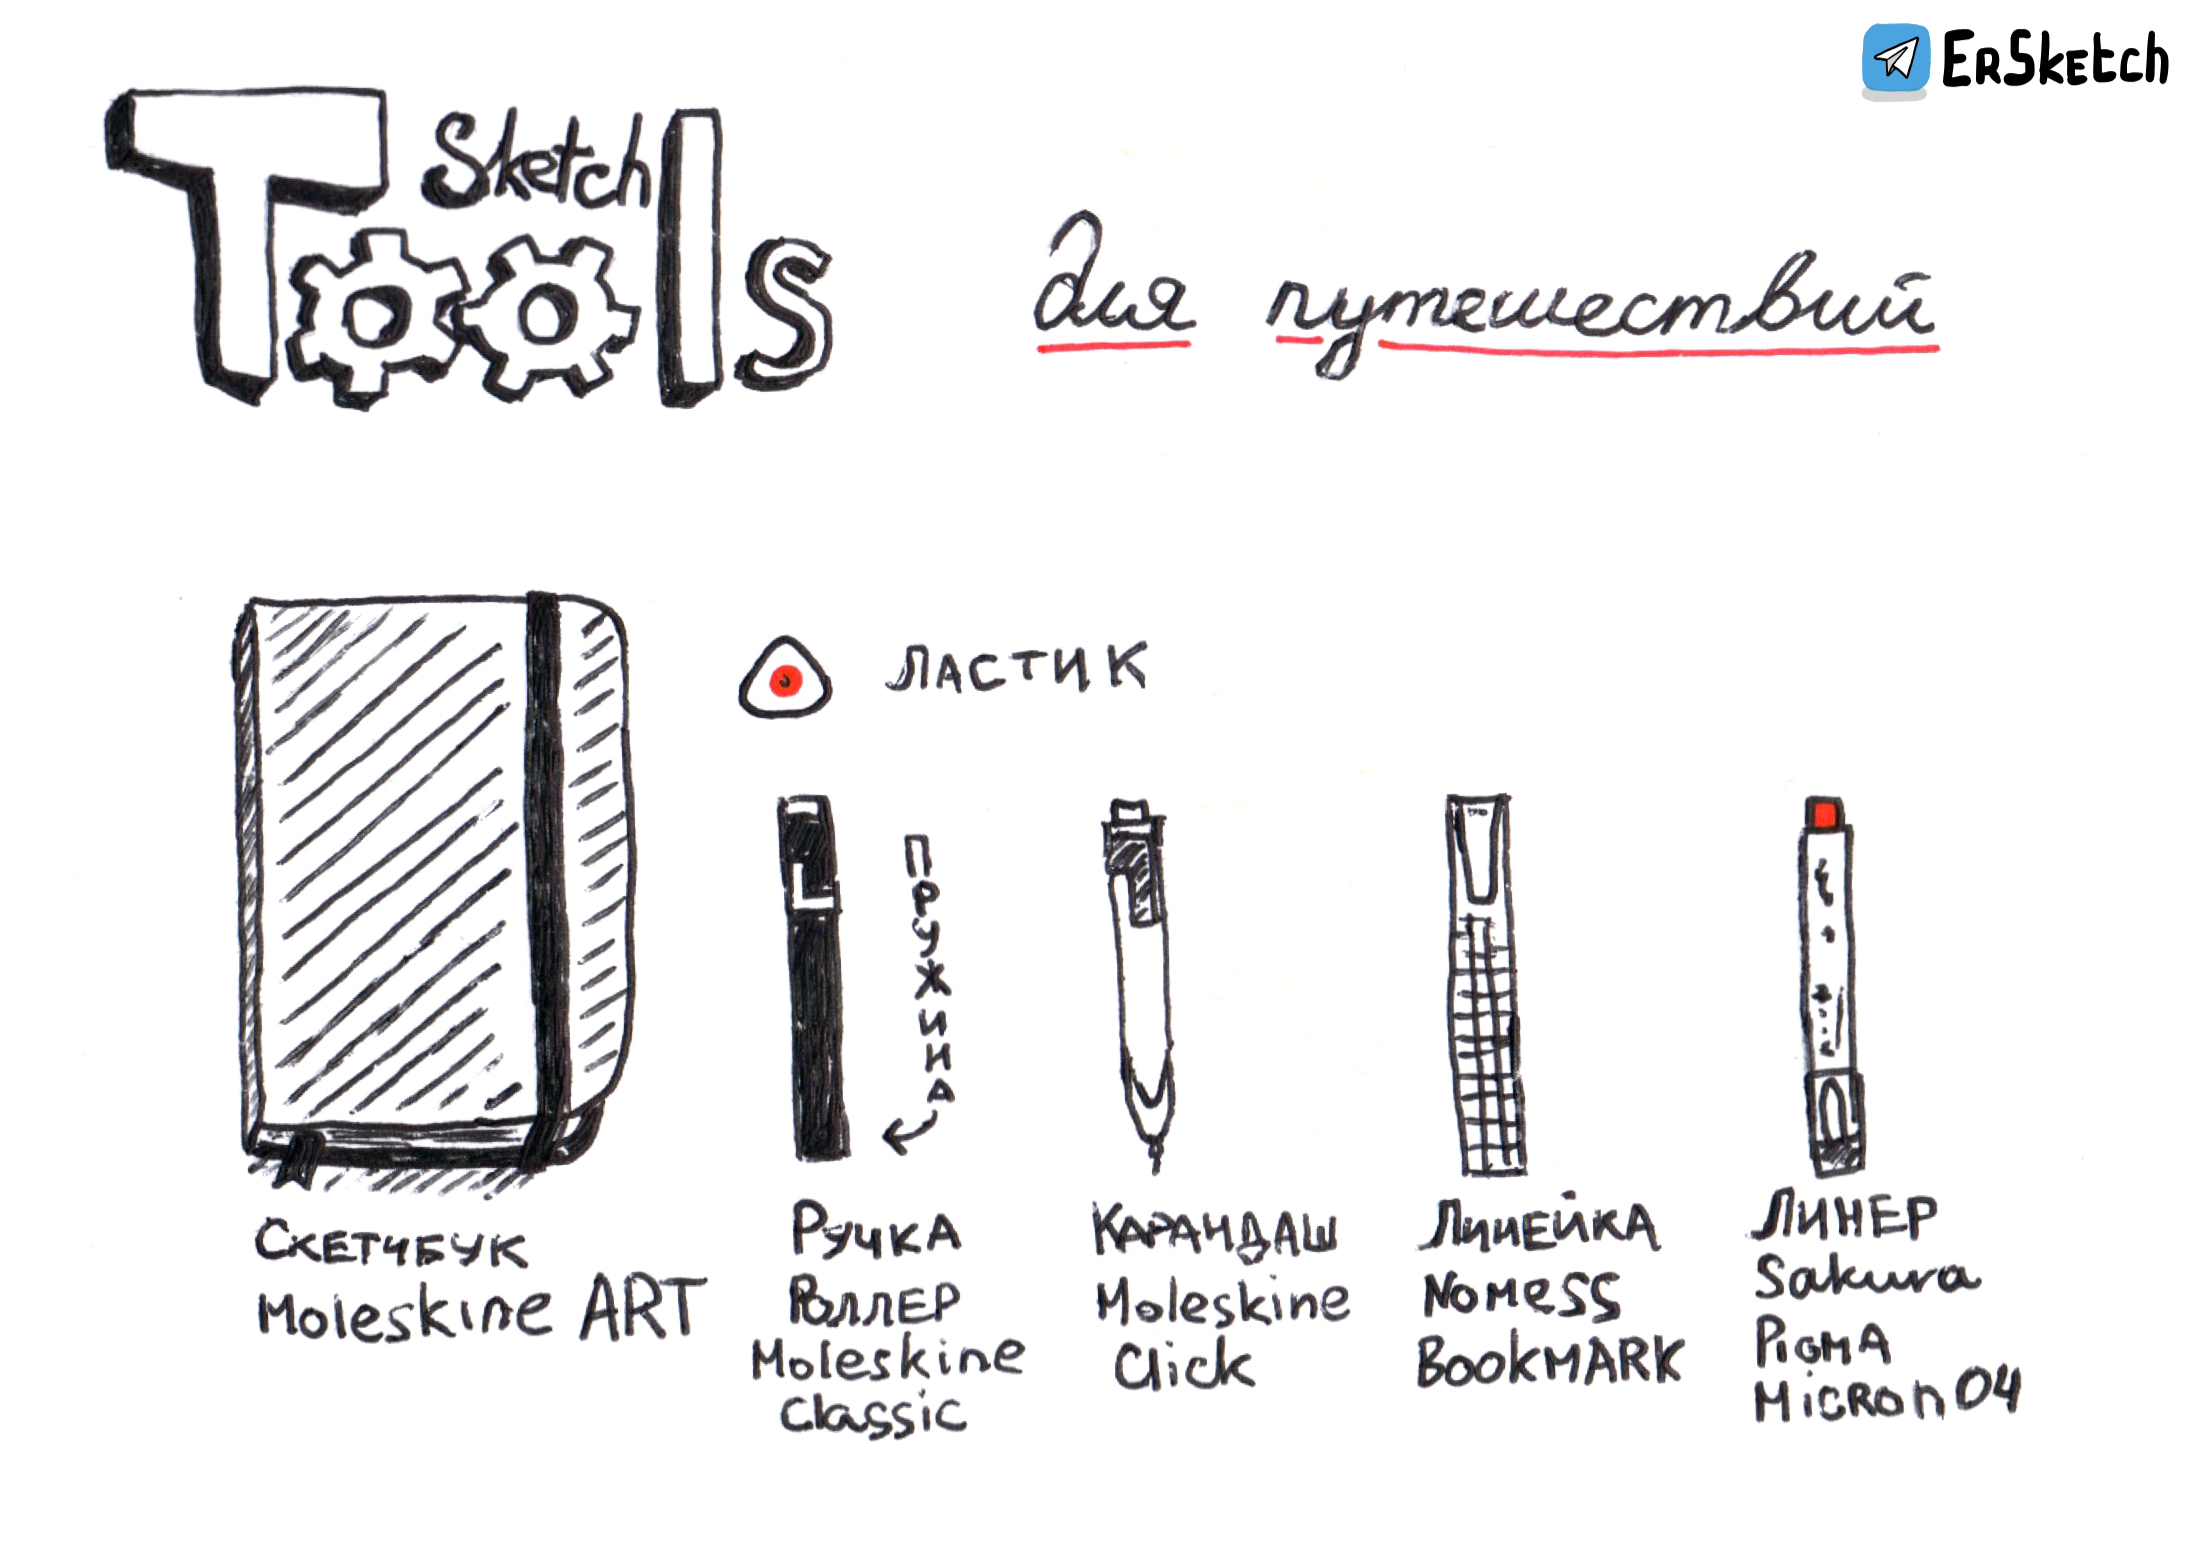 ErSketch
Sketch
Tools
для путешествий
ЛАСТИК
ПРУЖИНА
СКЕТЧБУК
Moleskine ART
РУЧКА
РОЛЛЕР
Moleskine
Classic
КАРАНДАШ
Moleskine
Click
ЛИНЕЙКА
Nomess
BOOKMARK
ЛИНЕР
Sakura
PIGMA
MICRON 04